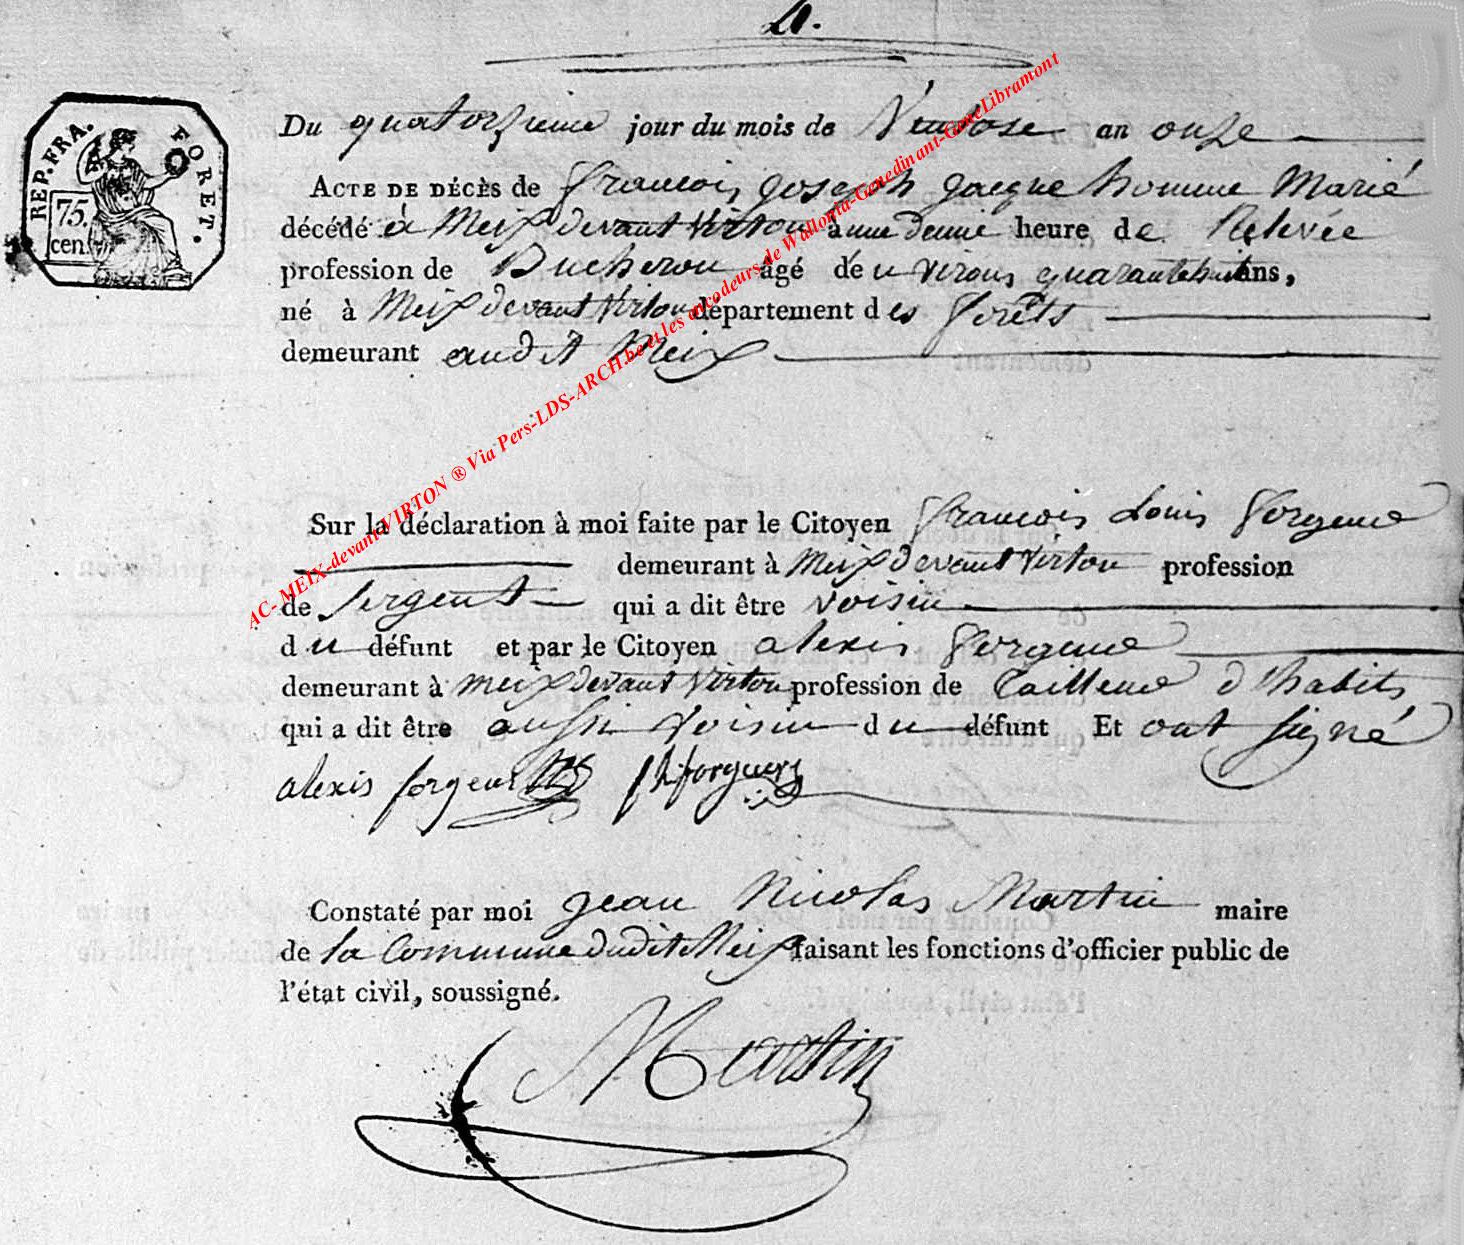 4.
REP. FRA. FORET.
75. cen.
Du quatorzieme jour du mois de Ventose an onze
ACTE DE DÉCÈS de francois joseph jacque homme Marié
décédé à Meix devant Virton à une demie heure de Relevée
profession de Bucheron âgé d'environs quarante huit ans,
né à Meix devant Virton département des forêts
demeurant audit Meix
Sur la déclaration à moi faite par le Citoyen francois Louis forgeur
demeurant à Meix devant Virton profession
de sergent qui a dit être voisin
du défunt et par le Citoyen alexis forgeur
demeurant à meix devant Virton profession de tailleur d'habits
qui a dit être aussi voisin du défunt Et ont signé
alexis forgeur f l forgeur
Constaté par moi jean Nicolas Martin maire
de la Commune dudit Meix faisant les fonctions d'officier public de
l'état civil, soussigné.
Martin
AC- MEIX-devant-VIRTON ® Via Pers-LDS-ARCH.be et les encodeurs de Wallonia-Genedinant-GeneLibramont